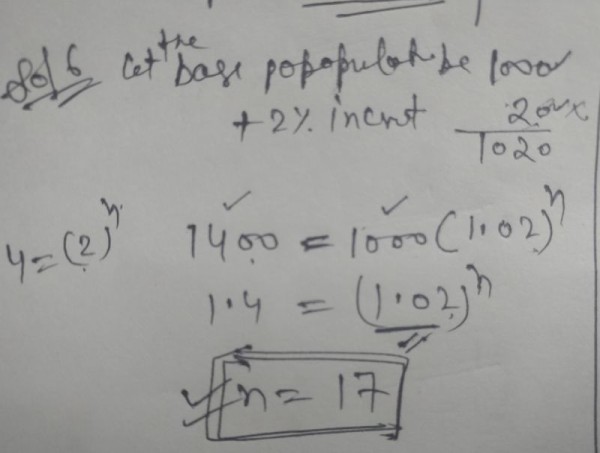 Sol 6 Let the base popopulat be 1000
+ 2% incrnt 20
1020
4 = (2)^n 1400 = 1000 (1.02)^n
1.4 = (1.02)^n
n = 17